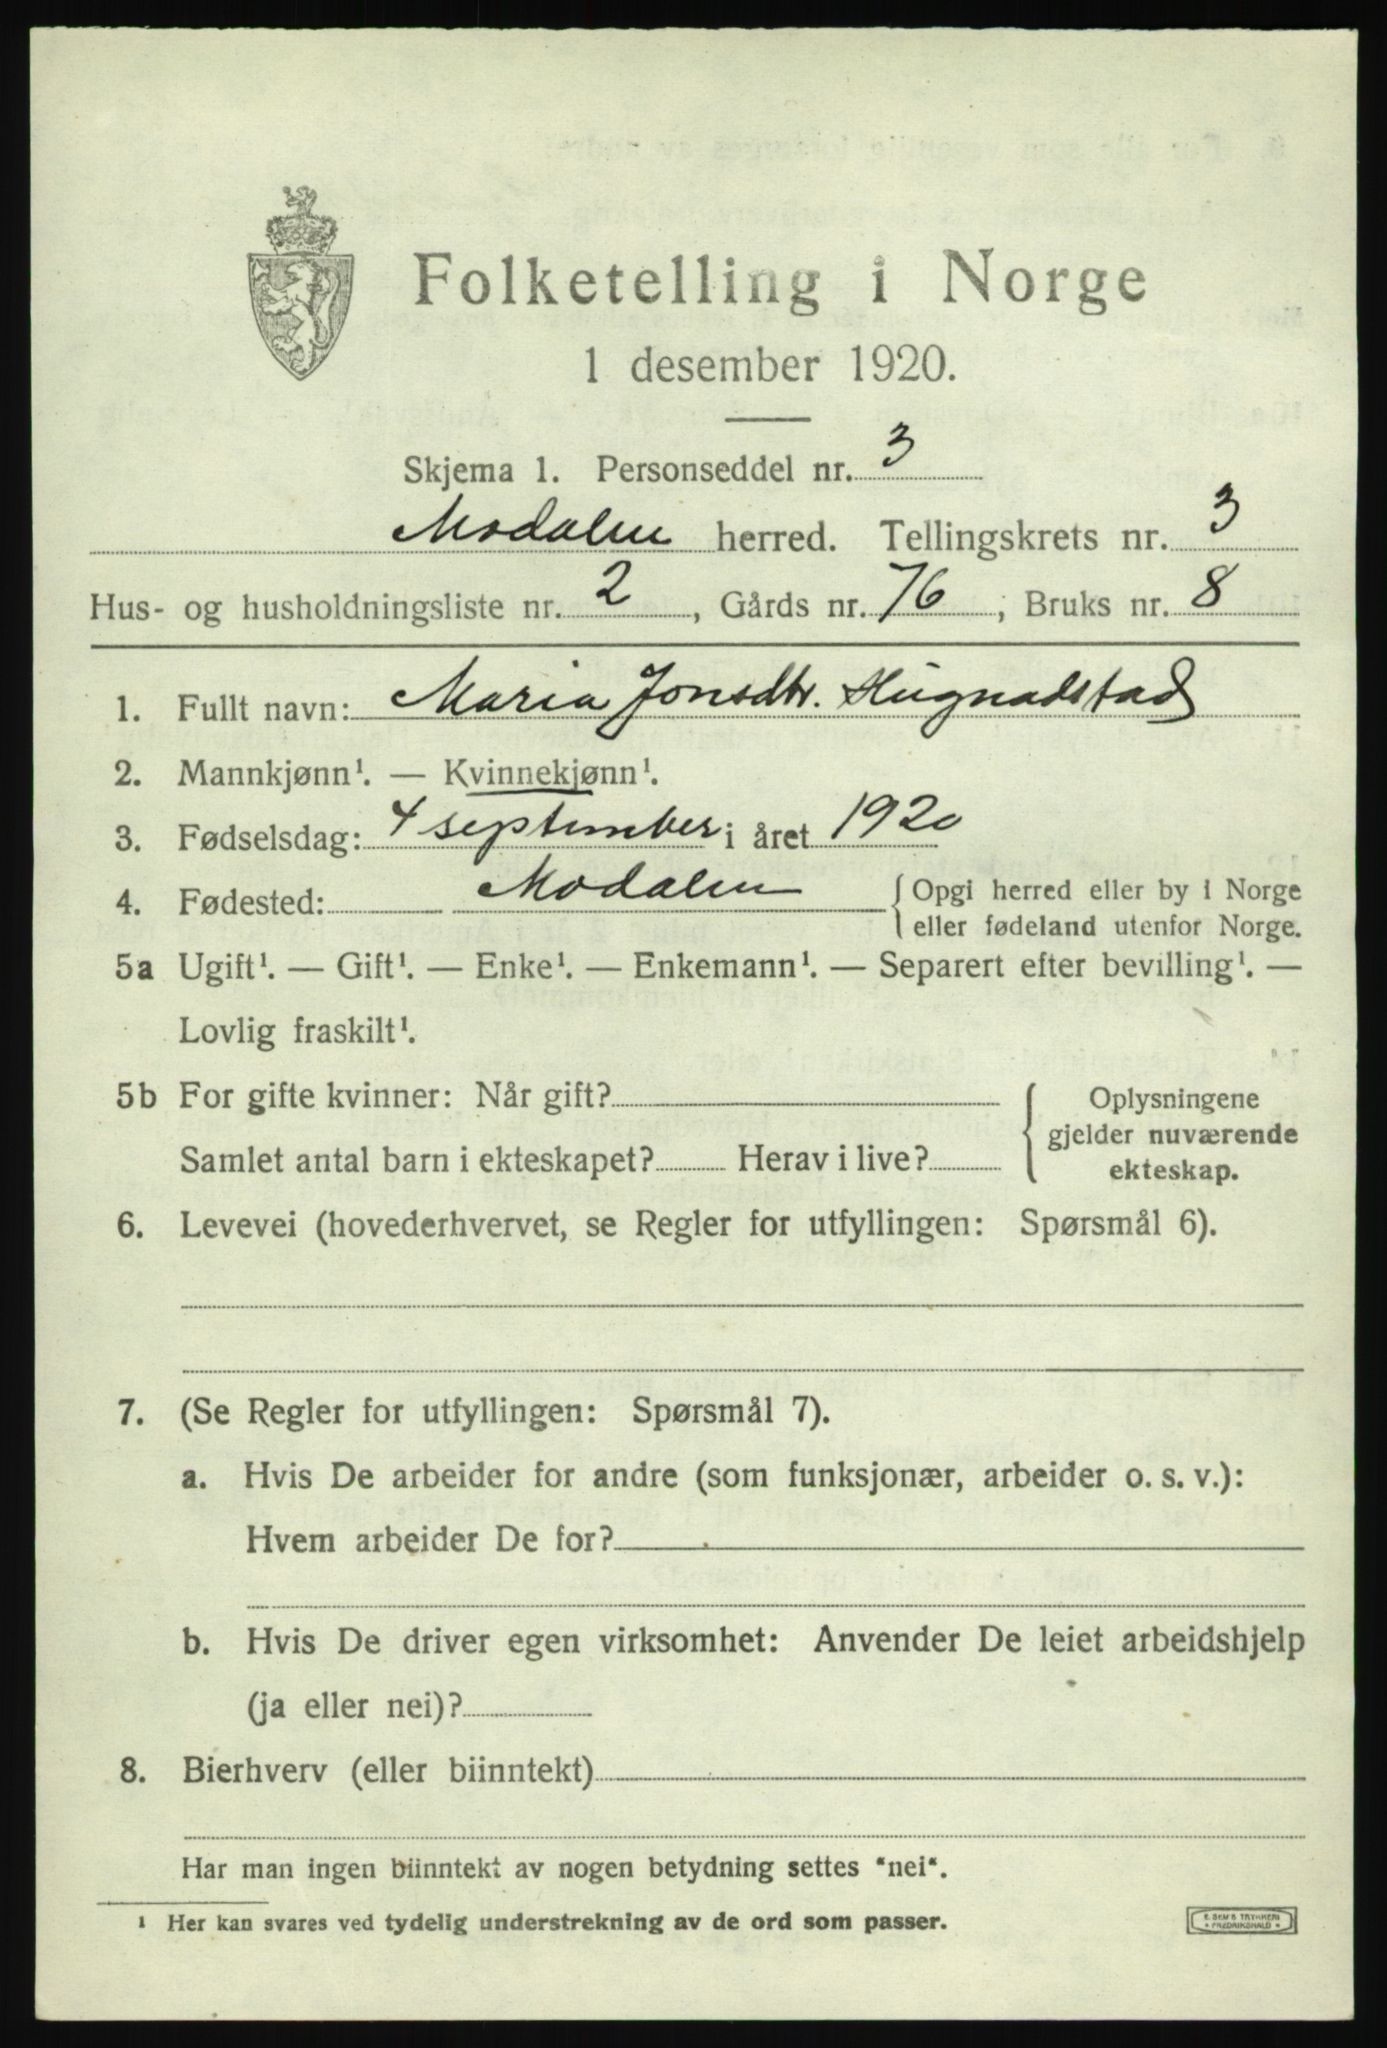 Folketelling i Norge
1 desember 1920.
Skjema 1. Personseddel nr. 3
Modalen herred. Tellingskrets nr. 3
Hus- og husholdningsliste nr. 2, Gårds nr. 76, Bruks nr. 8
1. Fullt navn: Maria Jonsdtr. Hugnadstad
2. Mannkjønn¹. — Kvinnekjønn¹.
3. Fødselsdag: 4 september i året 1920
4. Fødested: Modalen { Opgi herred eller by i Norge
eller fødeland utenfor Norge.
5a Ugift¹. — Gift¹. — Enke¹. — Enkemann¹. — Separert efter bevilling¹. —
Lovlig fraskilt¹.
5b For gifte kvinner: Når gift? { Oplysningene
gjelder nuværende
Samlet antal barn i ekteskapet? Herav i live? ekteskap.
6. Levevei (hovederhvervet, se Regler for utfyllingen: Spørsmål 6).
7. (Se Regler for utfyllingen: Spørsmål 7).
a. Hvis De arbeider for andre (som funksjonær, arbeider o. s. v.):
Hvem arbeider De for?
b. Hvis De driver egen virksomhet: Anvender De leiet arbeidshjelp
(ja eller nei)?
8. Bierhverv (eller biinntekt)
Har man ingen biinntekt av nogen betydning settes "nei".
¹ Her kan svares ved tydelig understrekning av de ord som passer.
E. SEM'S TRYKKERI
* FREDRIKSHALD *